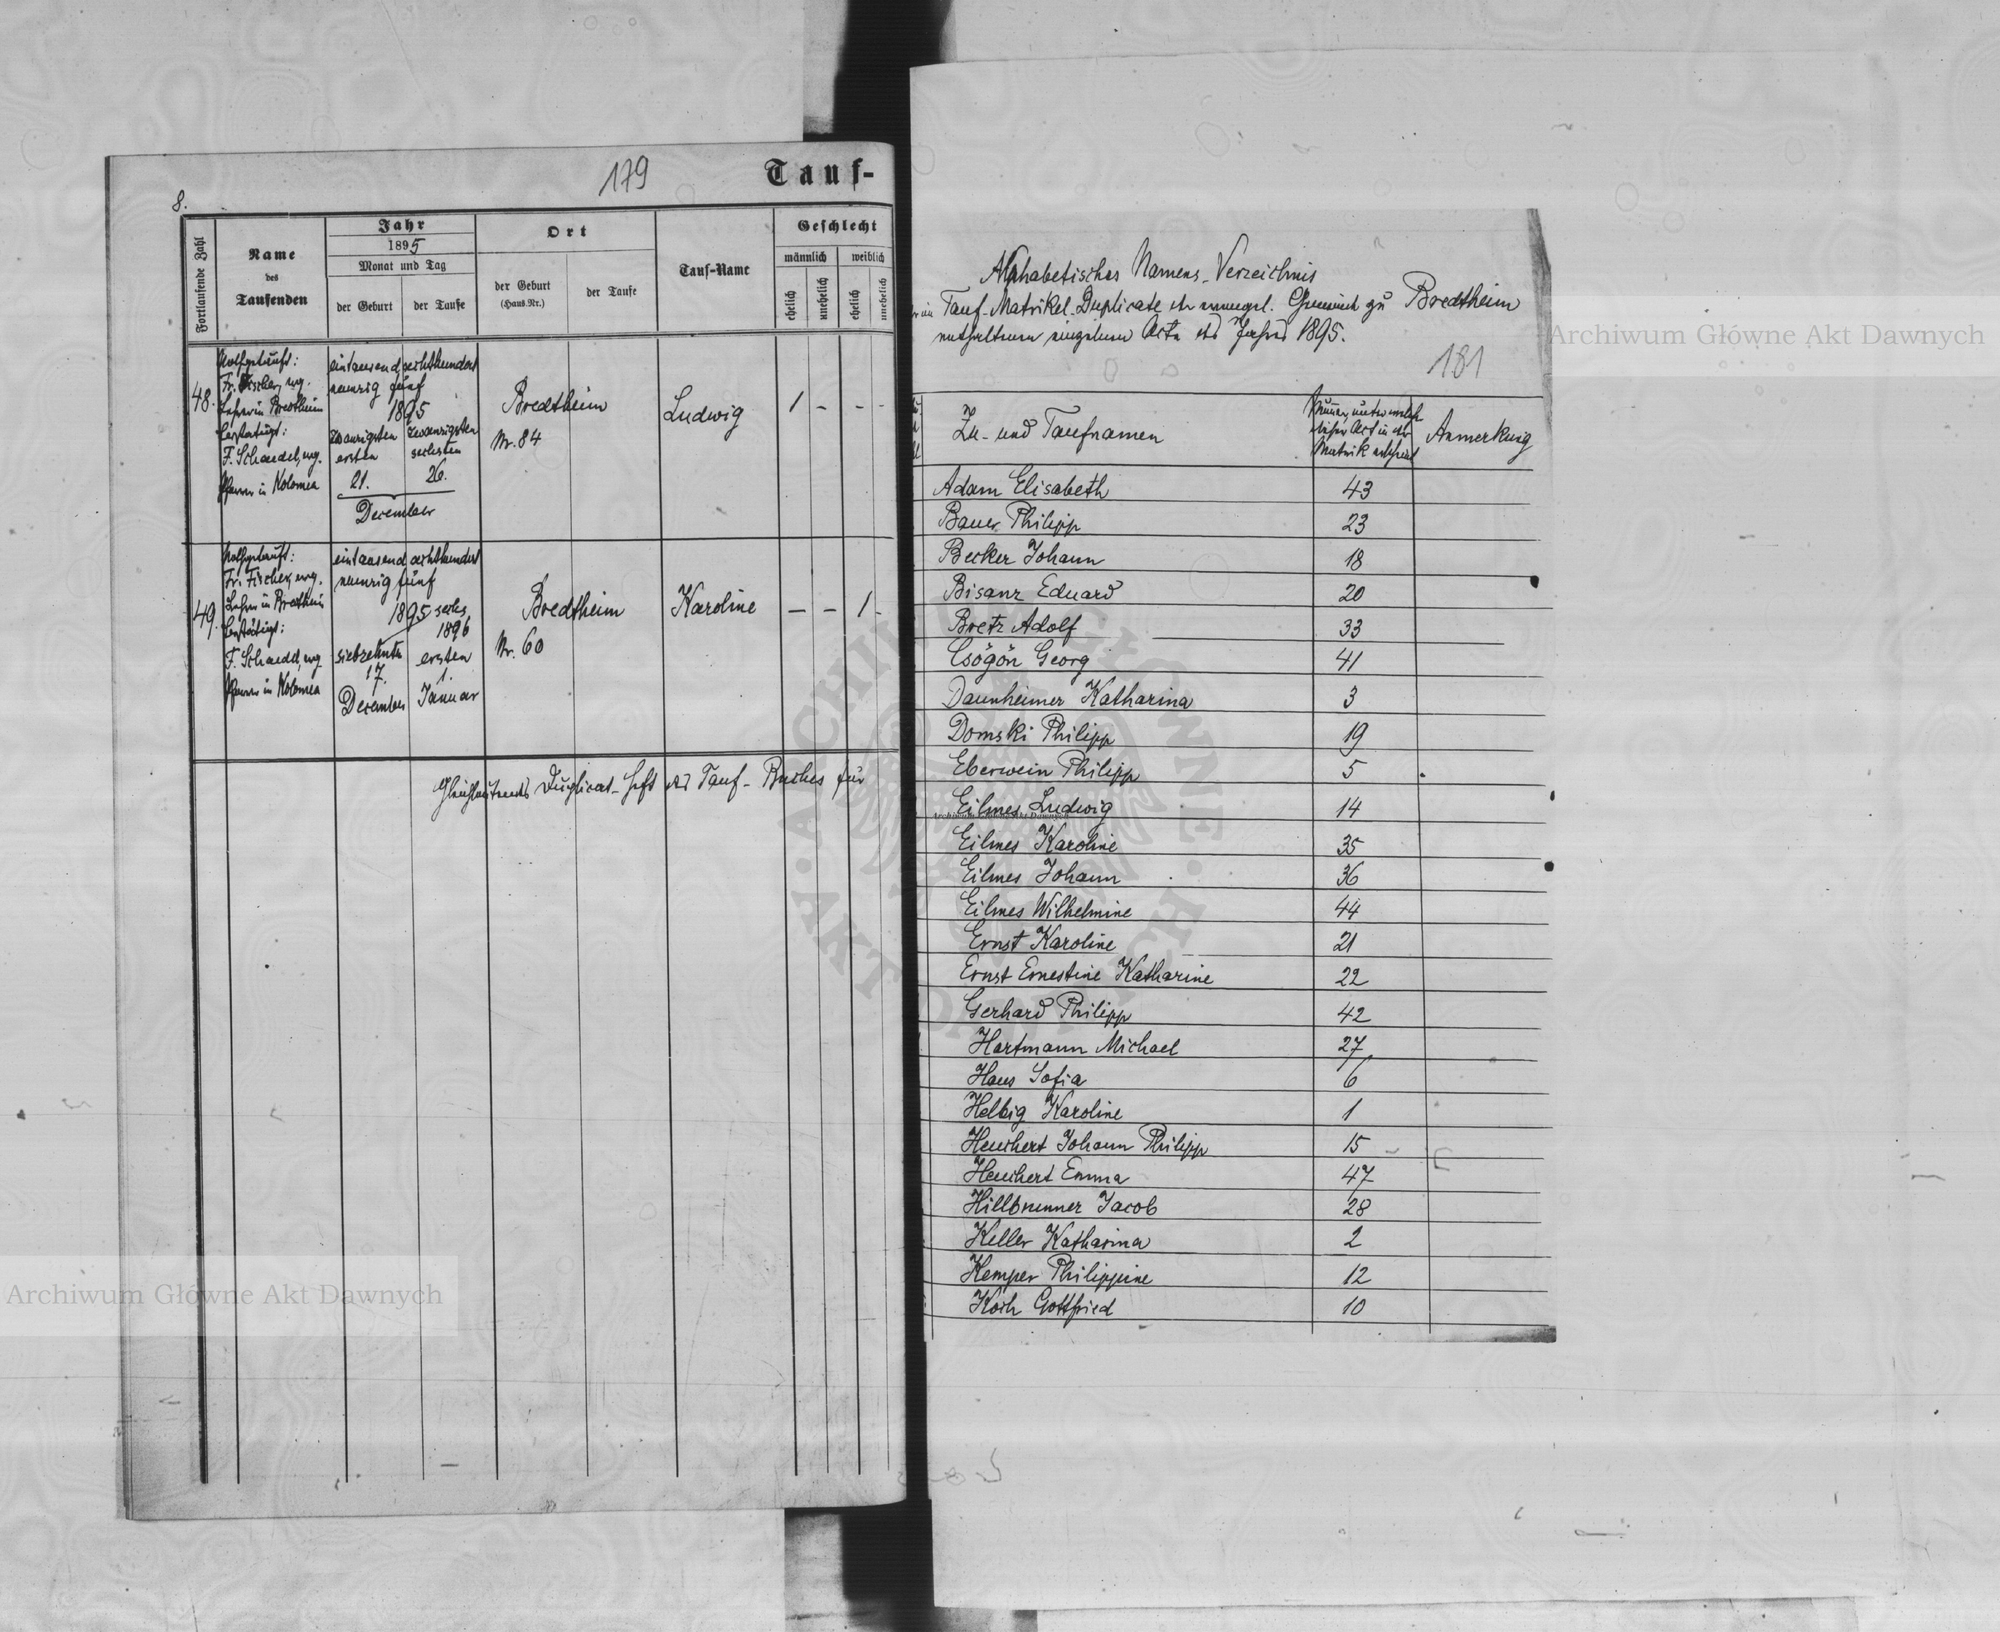 179
Tauf-
8.
Fortlaufende Zahl
Name
des
Taufenden
Jahr
1895
Monat und Tag
der Geburt
der Taufe
Ort
der Geburt
(Haus.Nr.)
der Taufe
Tauf-Name
Geschlecht
männlich
weiblich
ehelich
unehelich
ehelich
unehelich
48.
Nothgetauft:
Fr. Fischer, mg.
Lehrer in Bredtheim
bestätigt:
F. Schaedel, mg.
Pfarrer in Kolomea
eintausend achthundert
neunzig fünf
1895
zwanzigsten
ersten
21.
zwanzigsten
sechsten
26.
December
Bredtheim
Nr. 84
Ludwig
1 - - -
49.
Nothgetauft:
Fr. Fischer, mg.
Lehrer in Bredtheim
bestätigt:
F. Schaedel, mg.
Pfarrer in Kolomea
eintausend achthundert
neunzig fünf
1895 sechs
1896
siebzehnte
17.
December
ersten
1.
Januar
Bredtheim
Nr. 60
Karoline
- - 1 -
Gleichlautendes Duplicat-Heft des Tauf-Buches für
Alphabetisches Namens-Verzeichnis
Tauf-Matrikel-Duplicate der evangel. Gemeinde zu Bredtheim
enthaltenen einzelnen Acte des Jahres 1895.
181
Zu- und Taufnamen
Nummer, unter welch
dieser Act in der
Matrik erscheint
Anmerkung
Adam Elisabeth 43
Bauer Philipp 23
Becker Johann 18
Bisanz Eduard 20
Bretz Adolf 33
Csögön Georg 41
Daunheimer Katharina 3
Domski Philipp 19
Eberwein Philipp 5
Eilmes Ludwig 14
Eilmes Karoline 35
Eilmes Johann 36
Eilmes Wilhelmine 44
Ernst Karoline 21
Ernst Ernestine Katharine 22
Gerhard Philipp 42
Hartmann Michael 27
Haus Sofia 6
Helbig Karoline 1
Heuchert Johann Philipp 15
Heuchert Emma 47
Hillbrunner Jacob 28
Keller Katharina 2
Kemper Philippine 12
Koch Gottfried 10
Archiwum Główne Akt Dawnych
Archiwum Główne Akt Dawnych
Archiwum Główne Akt Dawnych
ARCHIWUM GŁÓWNE AKT DAWNYCH